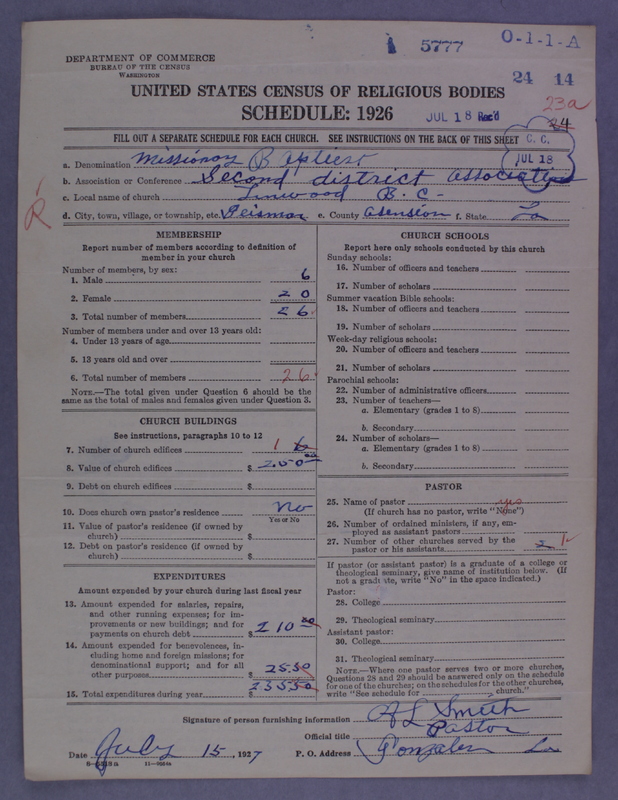 DEPARTMENT OF COMMERCE
BUREAU OF THE CENSUS
WASHINGTON
5777
O-1-1-A
24 14
UNITED STATES CENSUS OF RELIGIOUS BODIES
23a
SCHEDULE: 1926
JUL 18 Rec'd
24
FILL OUT A SEPARATE SCHEDULE FOR EACH CHURCH. SEE INSTRUCTIONS ON THE BACK OF THIS SHEET
C. C.
JUL 18
a. Denomination Missionary Baptiest
b. Association or Conference Second district association
c. Local name of church Linwood B. C-
R
d. City, town, village, or township, etc. Geismar e. County Asension f. State La
MEMBERSHIP
Report number of members according to definition of
member in your church
Number of members, by sex:
1. Male 6
2. Female 20
3. Total number of members 26
Number of members under and over 13 years old:
4. Under 13 years of age
5. 13 years old and over
6. Total number of members 26
NOTE.—The total given under Question 6 should be
the same as the total of males and females given under Question 3.
CHURCH BUILDINGS
See instructions, paragraphs 10 to 12
7. Number of church edifices 1 6
8. Value of church edifices $ 250 00
9. Debt on church edifices $
10. Does church own pastor's residence? No
Yes or No
11. Value of pastor's residence (if owned by
church) $
12. Debt on pastor's residence (if owned by
church) $
EXPENDITURES
Amount expended by your church during last fiscal year
13. Amount expended for salaries, repairs,
and other running expenses; for im-
provements or new buildings; and for
payments on church debt $ 210 00
14. Amount expended for benevolences, in-
cluding home and foreign missions; for
denominational support; and for all
other purposes $ 25.50
15. Total expenditures during year $ 235.50
CHURCH SCHOOLS
Report here only schools conducted by this church
Sunday schools:
16. Number of officers and teachers
17. Number of scholars
Summer vacation Bible schools:
18. Number of officers and teachers
19. Number of scholars
Week-day religious schools:
20. Number of officers and teachers
21. Number of scholars
Parochial schools:
22. Number of administrative officers
23. Number of teachers—
a. Elementary (grades 1 to 8)
b. Secondary
24. Number of scholars—
a. Elementary (grades 1 to 8)
b. Secondary
PASTOR
25. Name of pastor yes
(If church has no pastor, write "None")
26. Number of ordained ministers, if any, em-
ployed as assistant pastors
27. Number of other churches served by the
pastor or his assistants 2 1
If pastor (or assistant pastor) is a graduate of a college or
theological seminary, give name of institution below. (If
not a graduate, write "No" in the space indicated.)
Pastor:
28. College
29. Theological seminary
Assistant pastor:
30. College
31. Theological seminary
NOTE.—Where one pastor serves two or more churches,
Questions 28 and 29 should be answered only on the schedule
for one of the churches; on the schedules for the other churches,
write "See schedule for church."
Signature of person furnishing information A L Smith
Official title Pastor
Date July 15, 1927 P. O. Address Gonzales La